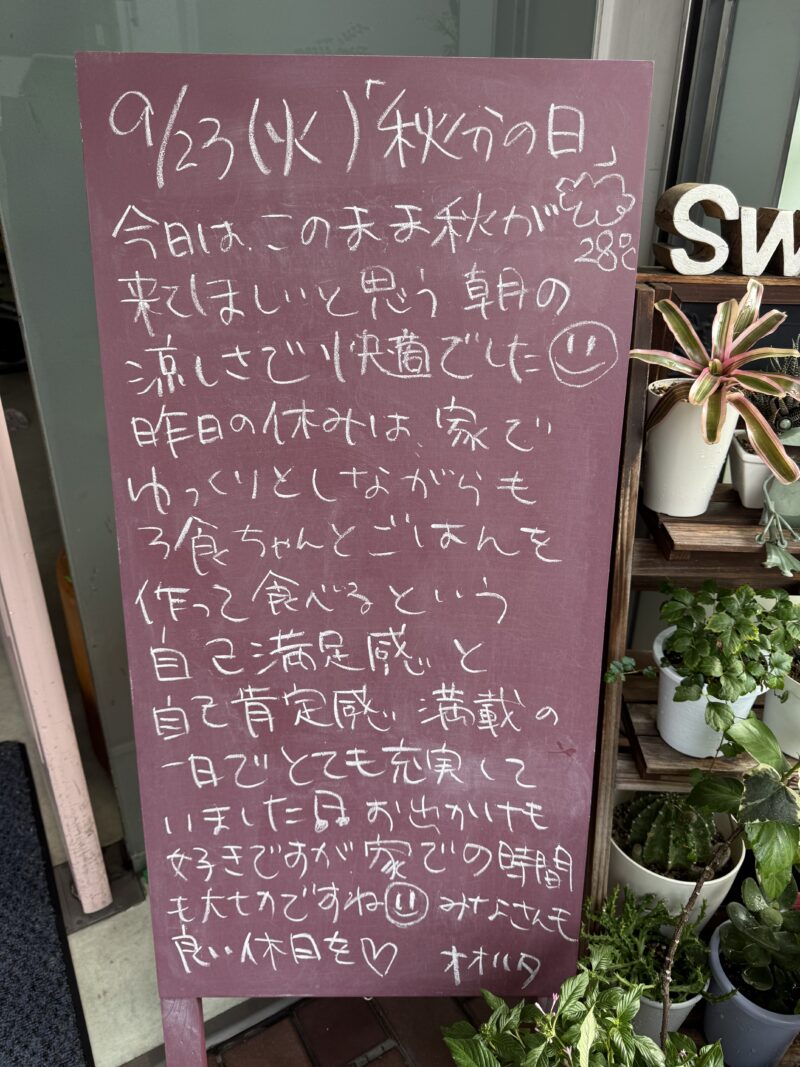 9/23(火)「秋分の日」
28℃
今日は、このまま秋が
来てほしいと思う朝の
涼しさで快適でした
昨日の休みは、家で
ゆっくりとしながらも
3食ちゃんとごはんを
作って食べるという
自己満足感と
自己肯定感満載の
一日でとても充実して
いました♫お出かけも
好きですが家での時間
も大切ですね みなさんも
良い休日を♡ オオハタ
Sw